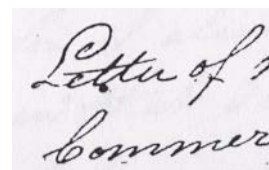 Letter of
Commer